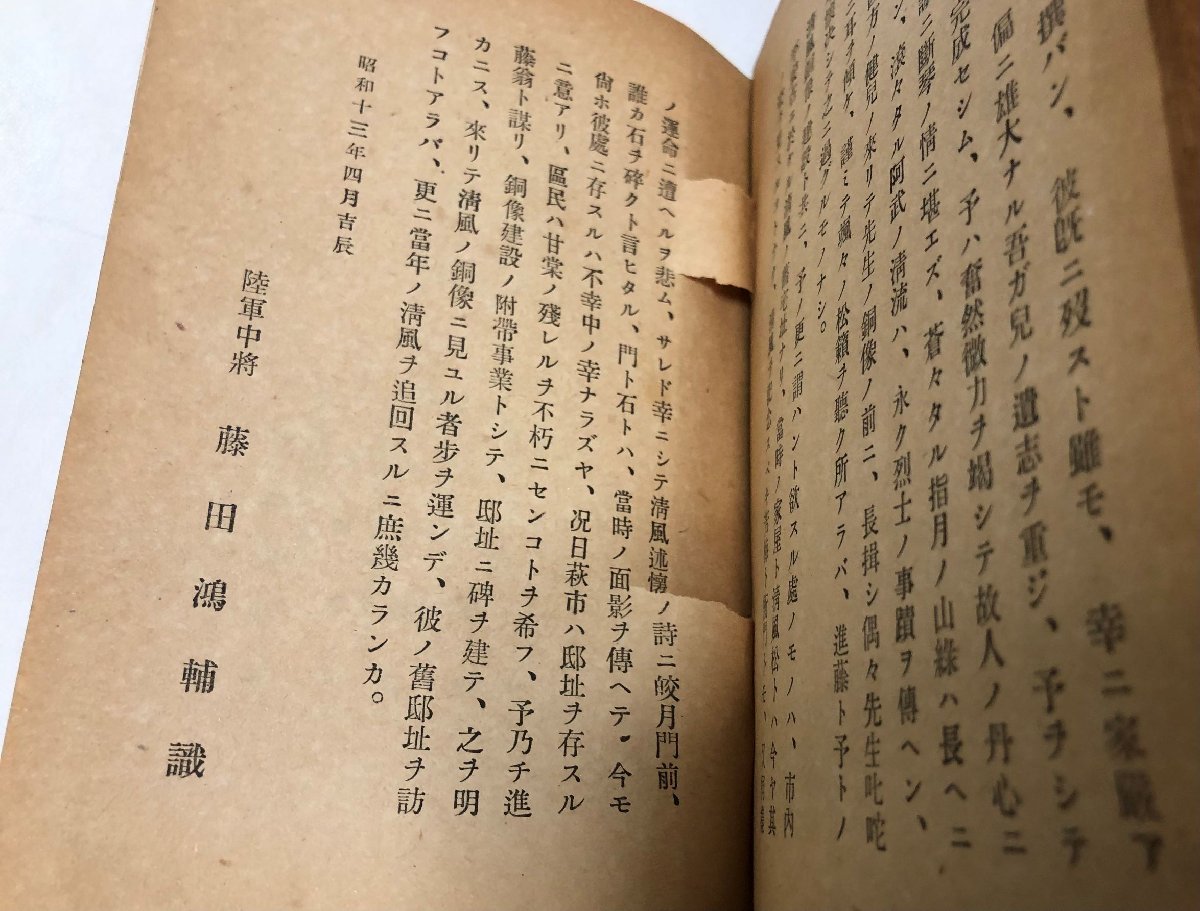 撰バン、彼既ニ歿スト雖モ、幸ニ家嚴ア
偏ニ雄大ナル吾ガ兒ノ遺志ヲ重ジ、予ヲシテ
完成セシム、予ハ奮然微力ヲ竭シテ故人ノ丹心ニ
ニ斷琴ノ情ニ堪エズ、蒼々タル指月ノ山綠ハ長ヘニ
ン、淡々タル阿武ノ淸流ハ、永ク烈士ノ事蹟ヲ傳ヘン、
方ノ健兒ノ來リテ先生ノ銅像ノ前ニ、長揖シ偶々先生叱咤
ニ耳ヲ傾ケ、謹ミテ颯々ノ松籟ヲ聽ク所アラバ、進藤ト予トノ
シテ之ニ過グルモノナシ。
ノ建設ト共ニ、予ノ更ニ謂ハント欲スル處ノモノハ、市內
當時ノ家屋ト淸風松トハ今ヤ其
ノ運命ニ遭ヘルヲ悲ム、サレド幸ニシテ淸風述懷ノ詩ニ皎月門前、
誰カ石ヲ碎クト言ヒタル、門ト石トハ、當時ノ面影ヲ傳ヘテ、今モ
尙ホ彼處ニ存スルハ不幸中ノ幸ナラズヤ、況日萩市ハ邸址ヲ存スル
ニ意アリ、區民ハ甘棠ノ殘レルヲ不朽ニセンコトヲ希フ、予乃チ進
藤翁ト謀リ、銅像建設ノ附帶事業トシテ、邸址ニ碑ヲ建テ、之ヲ明
カニス、來リテ淸風ノ銅像ニ見ユル者步ヲ運ンデ、彼ノ舊邸址ヲ訪
フコトアラバ、更ニ當年ノ淸風ヲ追回スルニ庶幾カランカ。
昭和十三年四月吉辰
陸軍中將　藤田鴻輔識